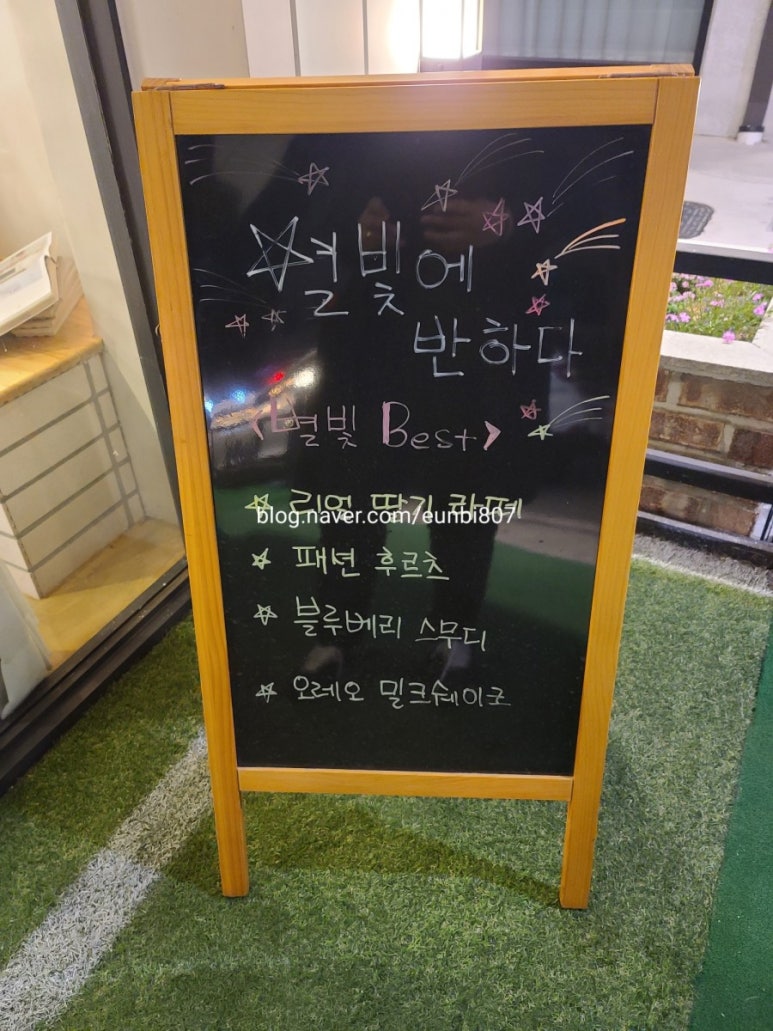 별빛에
반하다
<별빛 Best>
리얼 딸기 라떼
blog.naver.com/eunbi807
패션 후르츠
블루베리 스무디
오레오 밀크쉐이크